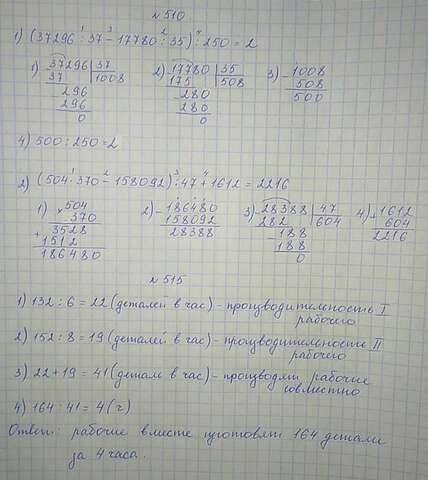 № 510
1) (37296 : 37 - 17780 : 35) : 250 = 2
1) 37296 | 37
37 | 1008
296
296
0
2) 17780 | 35
175 | 508
- 280
280
0
3) - 1008
508
500
4) 500 : 250 = 2
2) (504 · 370 - 158092) : 47 + 1612 = 2216
1) × 504
370
+ 3528
1512
186480
2) - 186480
158092
28388
3) - 28388 | 47
282 | 604
- 188
188
0
4) + 1612
604
2216
№ 515
1) 132 : 6 = 22 (деталей в час) - производительность I
рабочего
2) 152 : 8 = 19 (деталей в час) - производительность II
рабочего
3) 22 + 19 = 41 (детали в час) - производят рабочие
совместно
4) 164 : 41 = 4 (ч)
Ответ: рабочие вместе изготовят 164 детали
за 4 часа.